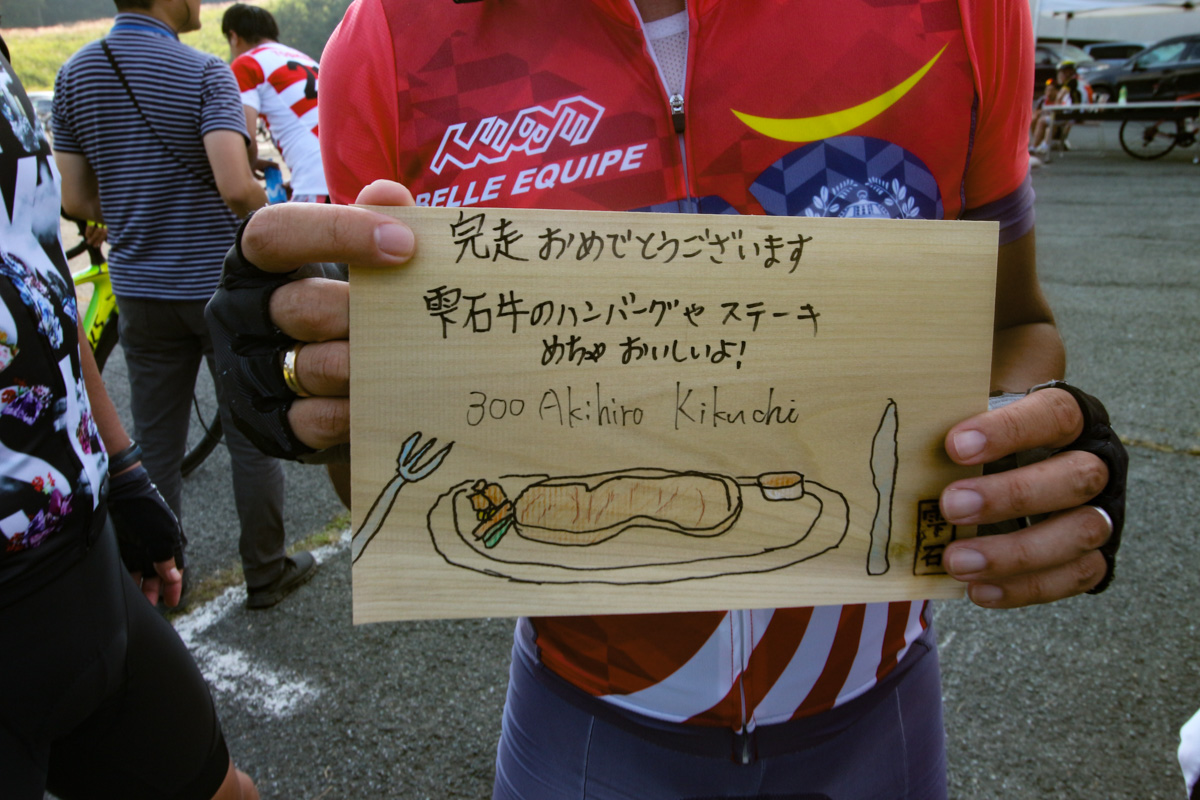 BELLE EQUIPE
完走 おめでとうございます
雫石牛のハンバーグや ステーキ
めちゅ おいしいよ!
300 Akihiro Kikuchi
雫石